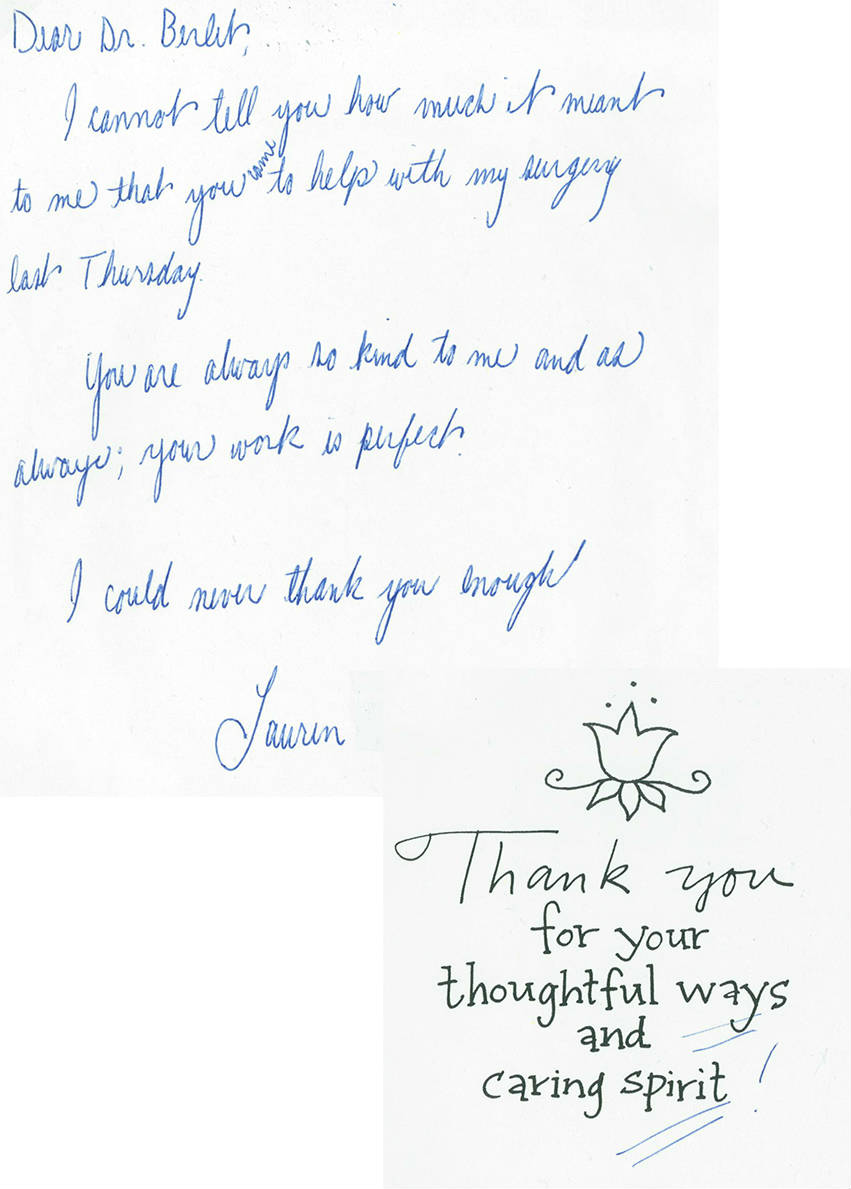 Dear Dr. Berlet,
I cannot tell you how much it meant
to me that you came to help with my surgery
last Thursday.
You are always so kind to me and as
always; your work is perfect.
I could never thank you enough!
Lauren
Thank you
for your
thoughtful ways
and
caring spirit !